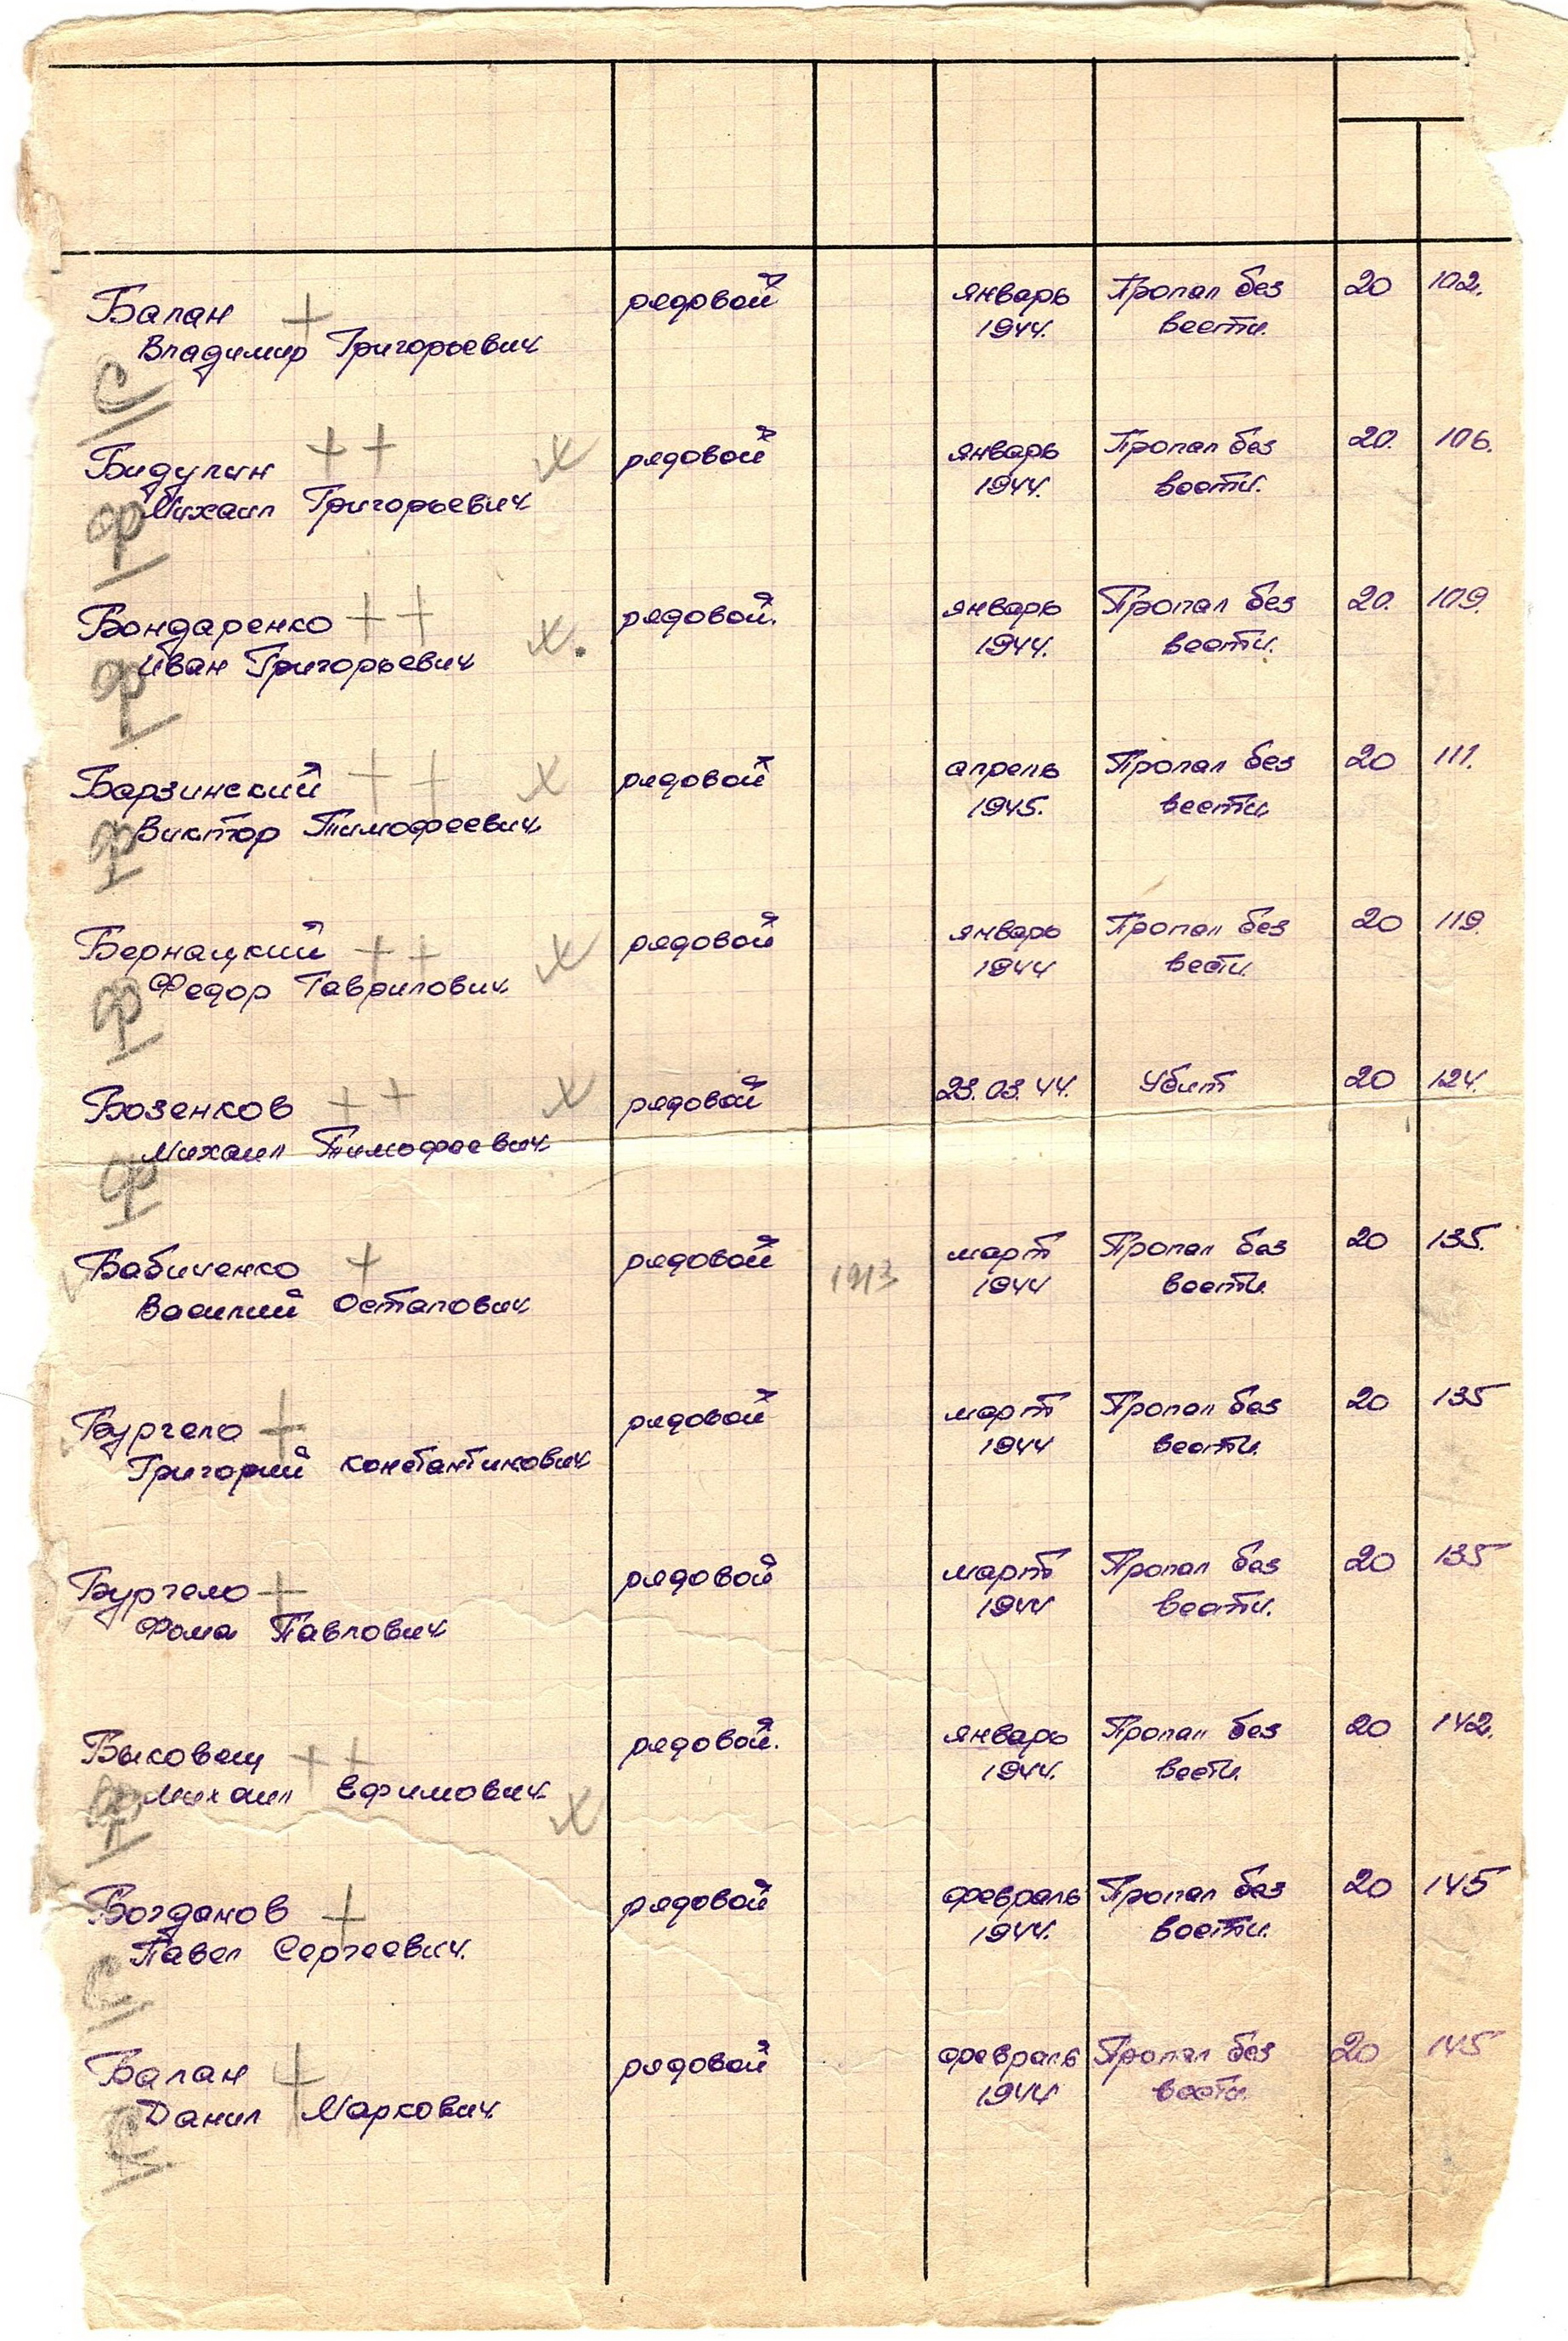 Балан + рядовой январь Пропал без 20 102.
Владимир Григорьевич 1944. вести.
С
Бидулин ++ х рядовой январь Пропал без 20. 106.
Михаил Григорьевич 1944. вести.
Ф
Бондаренко ++ х. рядовой. январь Пропал без 20. 109.
Иван Григорьевич 1944. вести.
Ф
Барзинский ++ х рядовой апрель Пропал без 20 111.
Виктор Тимофеевич 1945. вести
Ф
Бернацкий ++ х рядовой январь Пропал без 20 119.
Федор Гаврилович 1944 вести.
Ф
Бозенков ++ х рядовой 23.03.44. Убит 20 124.
Михаил Тимофеевич
Ф
Бабиченко + рядовой 1913 март Пропал без 20 135.
Василий Остапович 1944 вести
Бургело + рядовой март Пропал без 20 135
Григорий Константинович 1944 вести.
Бургело + рядовой март Пропал без 20 135
Фома Павлович 1944 вести.
Быковец ++ рядовой. январь Пропал без 20 142.
Михаил Ефимович х 1944. вести.
Ф
Богданов + рядовой февраль Пропал без 20 145
Павел Сергеевич. 1944. вести.
С
Балан + рядовой февраль Пропал без 20 145
Данил Маркович 1944 вести.
С